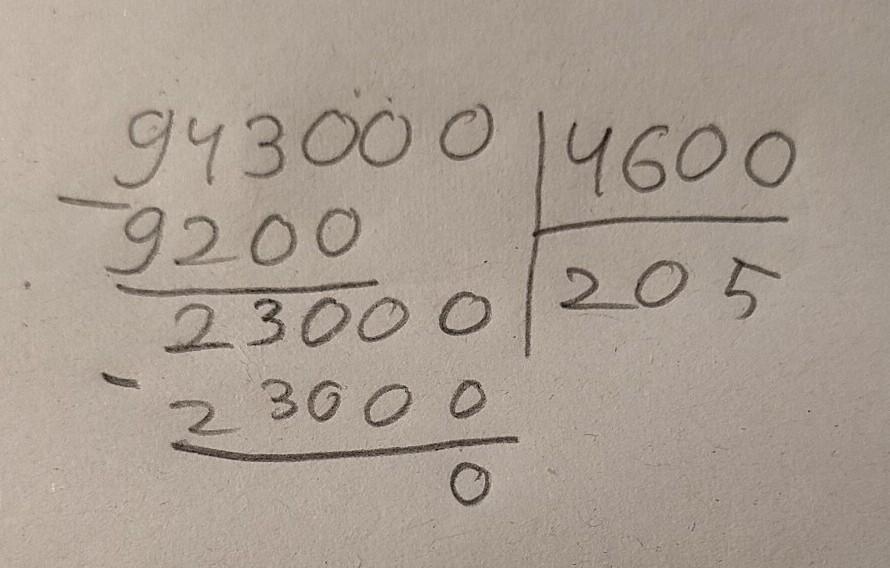 943000 | 4600
- 9200 | 205
23000
- 23000
0